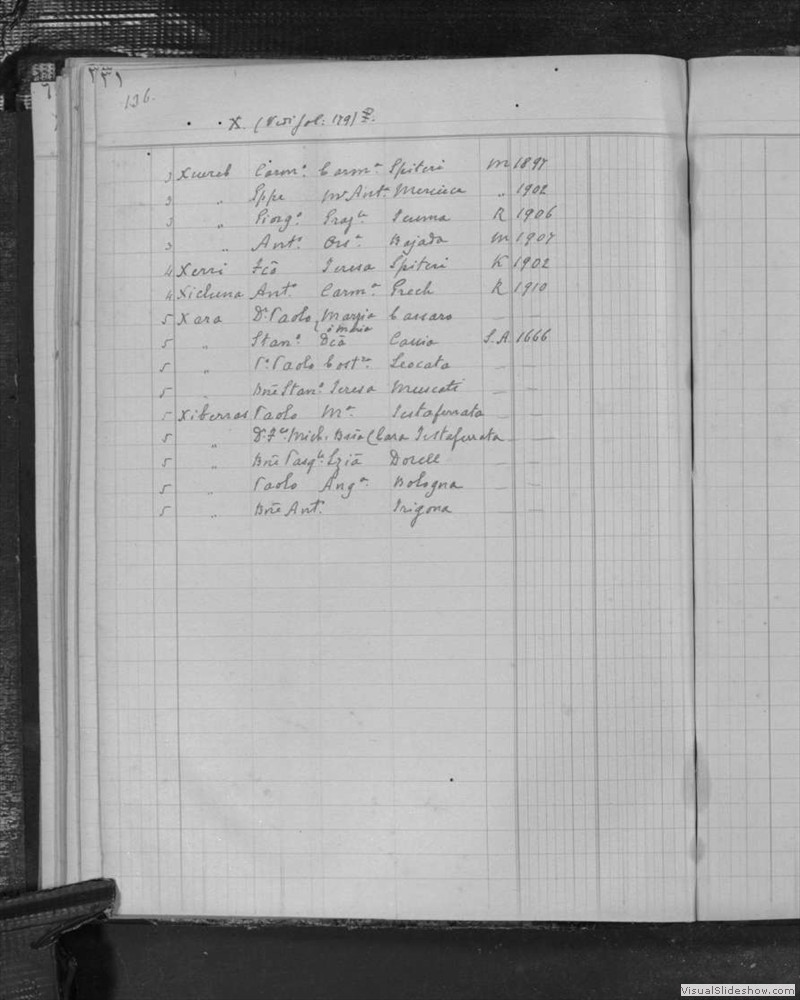 ٣٣١
136.
X. (Vedi fol: 179)
3 Xuereb Carmº Carmª Spiteri M 1897
3 " Gppe Mª Antª Mercieca " 1902
3 " Giorgº Grazª Teuma R 1906
3 " Antº Orsª Bajada M 1907
4 Xerri Fcō Teresa Spiteri K 1902
4 Xicluna Antº Carmª Grech R 1910
5 Xara Dr Paolo Marzia Cassaro
5 " Stanº Dcā Cassia S.A. 1666
5 " Paolo Costza Leocata
5 " Bne Stanº Teresa Muscati
5 Xiberras Paolo Mª Testaferrata
5 " Mich. Clara Testaferrata
5 " Bne Pasqle Lziā Dorell
5 " Paolo Angª Bologna
5 " Bne Antº Trigona
VisualSlideshow.com